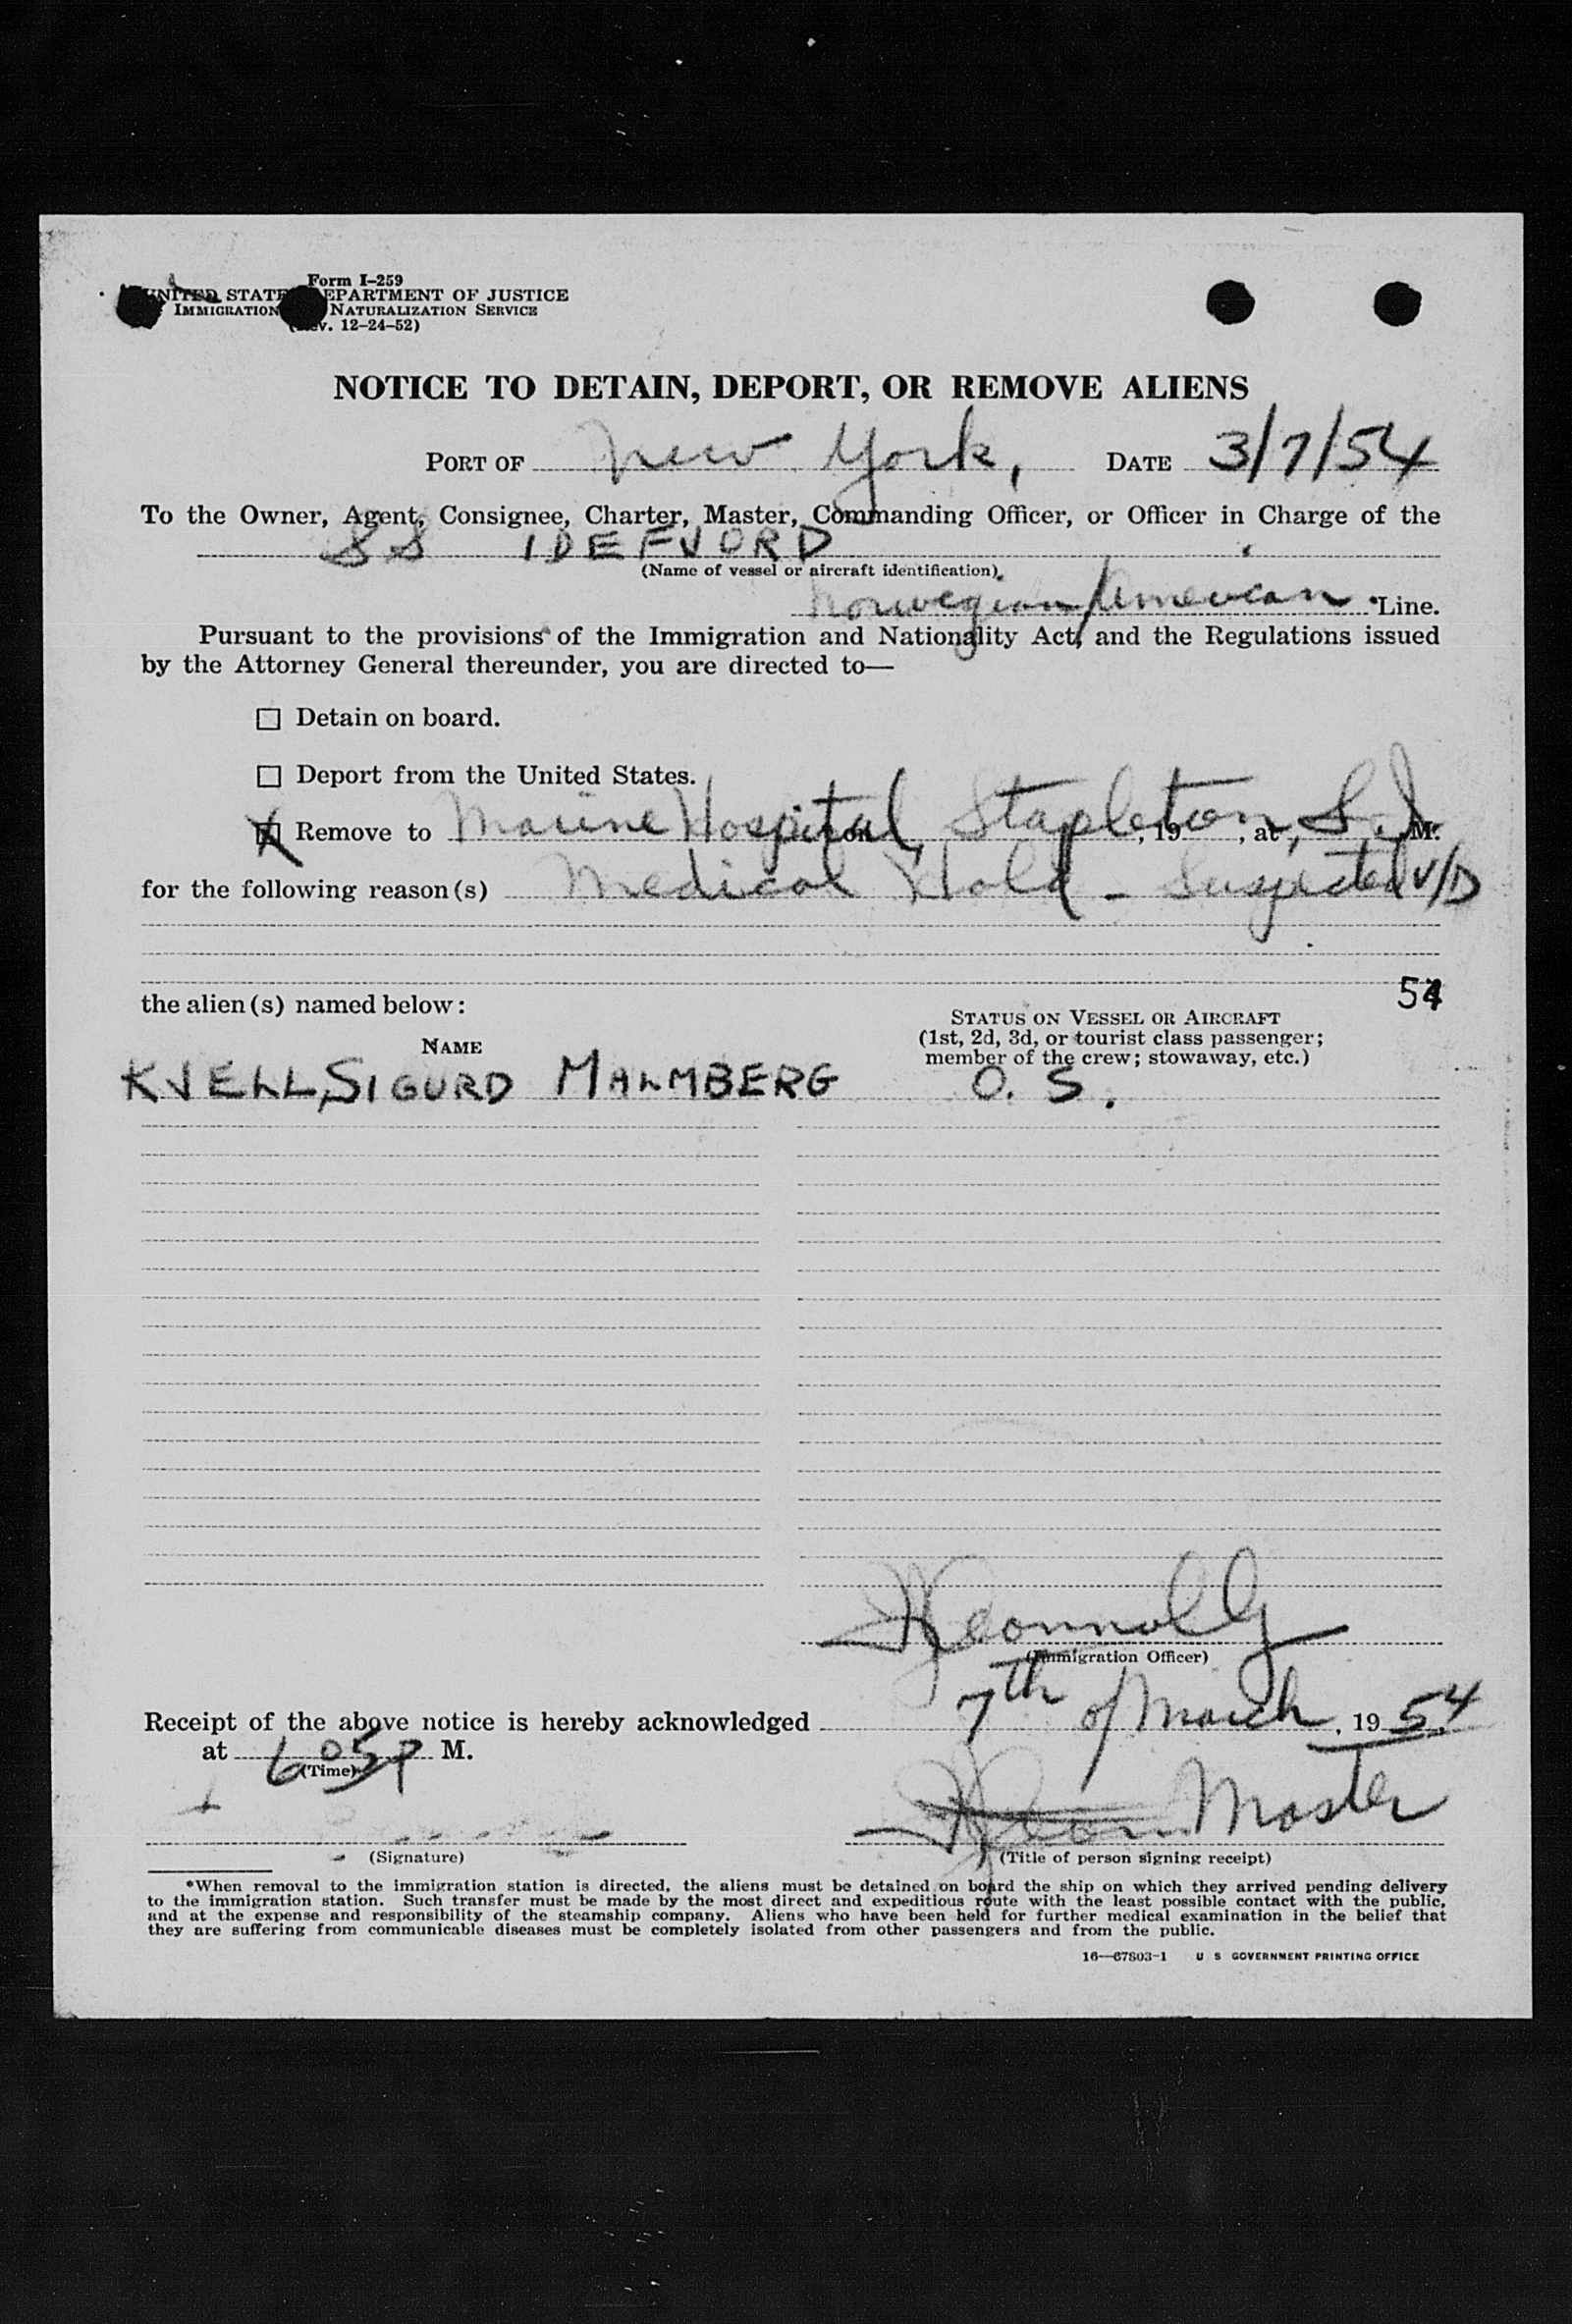 Form I-259
UNITED STATES DEPARTMENT OF JUSTICE
IMMIGRATION NATURALIZATION SERVICE
(Rev. 12-24-52)
NOTICE TO DETAIN, DEPORT, OR REMOVE ALIENS
PORT OF New York, DATE 3/7/54
To the Owner, Agent, Consignee, Charter, Master, Commanding Officer, or Officer in Charge of the
SS IDEFJORD
(Name of vessel or aircraft identification)
Norwegian/American *Line.
Pursuant to the provisions of the Immigration and Nationality Act, and the Regulations issued
by the Attorney General thereunder, you are directed to—
☐ Detain on board.
☐ Deport from the United States.
☒ Remove to Marine Hospital, on Stapleton, S.I., 19 , at , M.
for the following reason(s) Medical Hold - Suspected V/D
54
the alien(s) named below:
STATUS ON VESSEL OR AIRCRAFT
(1st, 2d, 3d, or tourist class passenger;
member of the crew; stowaway, etc.)
NAME
KJELL, SIGURD MALMBERG O. S.
Connolly
(Immigration Officer)
Receipt of the above notice is hereby acknowledged 7th of March, 1954
at 6 05 P M.
(Time)
Master
(Signature) (Title of person signing receipt)
*When removal to the immigration station is directed, the aliens must be detained on board the ship on which they arrived pending delivery
to the immigration station. Such transfer must be made by the most direct and expeditious route with the least possible contact with the public,
and at the expense and responsibility of the steamship company. Aliens who have been held for further medical examination in the belief that
they are suffering from communicable diseases must be completely isolated from other passengers and from the public.
16—67803-1 U S GOVERNMENT PRINTING OFFICE